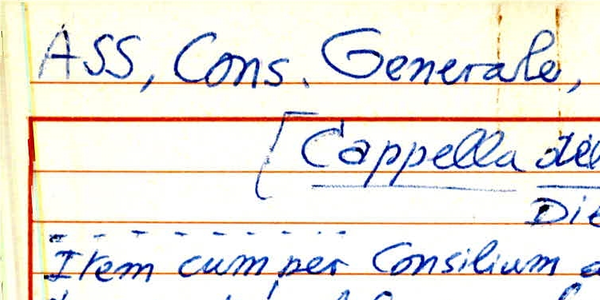 ASS, Cons. Generale,
[Cappella del
Die
Item cum per Consilium